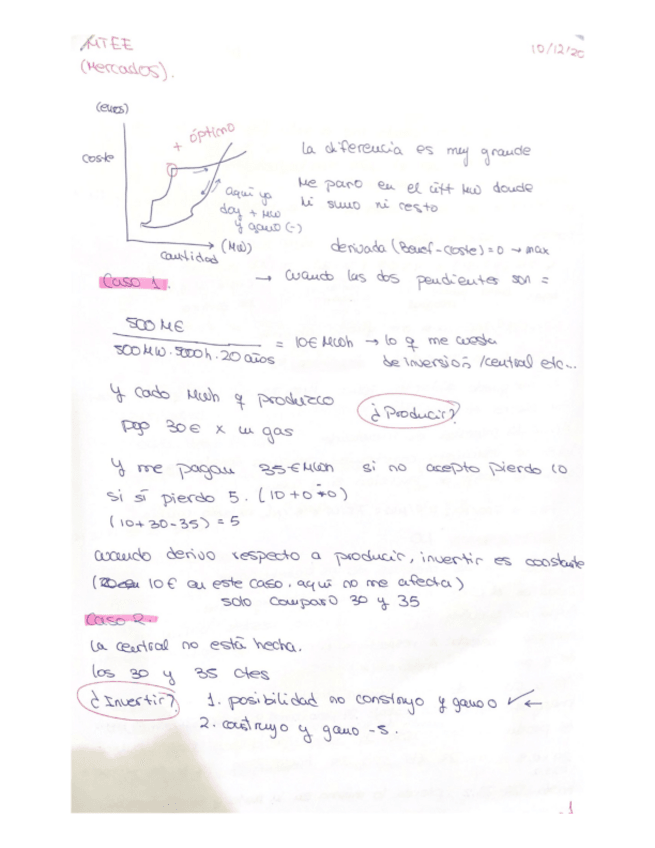 MTEE
10/12/20
(Mercados).
(euros)
+ óptimo
coste
La diferencia es muy grande
Me paro en el MW donde
aquí ya
doy + MW
y gano (-)
ni sumo ni resto
(MW)
cantidad
derivada (Benef-coste) = 0 → max
→ cuando las dos pendientes son =
Caso 1.
500 M€
500 MW . 5000 h . 20 años
= 10€ MWh → lo q me cuesta
de inversión /central etc...
Y cada MWh q produzco
pago 30€ x gas
¿Producir?
Y me pagan 35€MWh si no acepto pierdo 10
si sí pierdo 5. (10+0+0)
(10+30-35) = 5
cuando derivo respecto a producir, invertir es constante
( 10€ en este caso. aquí no me afecta)
solo comparo 30 y 35
Caso 2.
La central no está hecha.
los 30 y 35 ctes
¿Invertir? 1. posibilidad no construyo y gano 0 ✓ ←
2. construyo y gano -5.
1